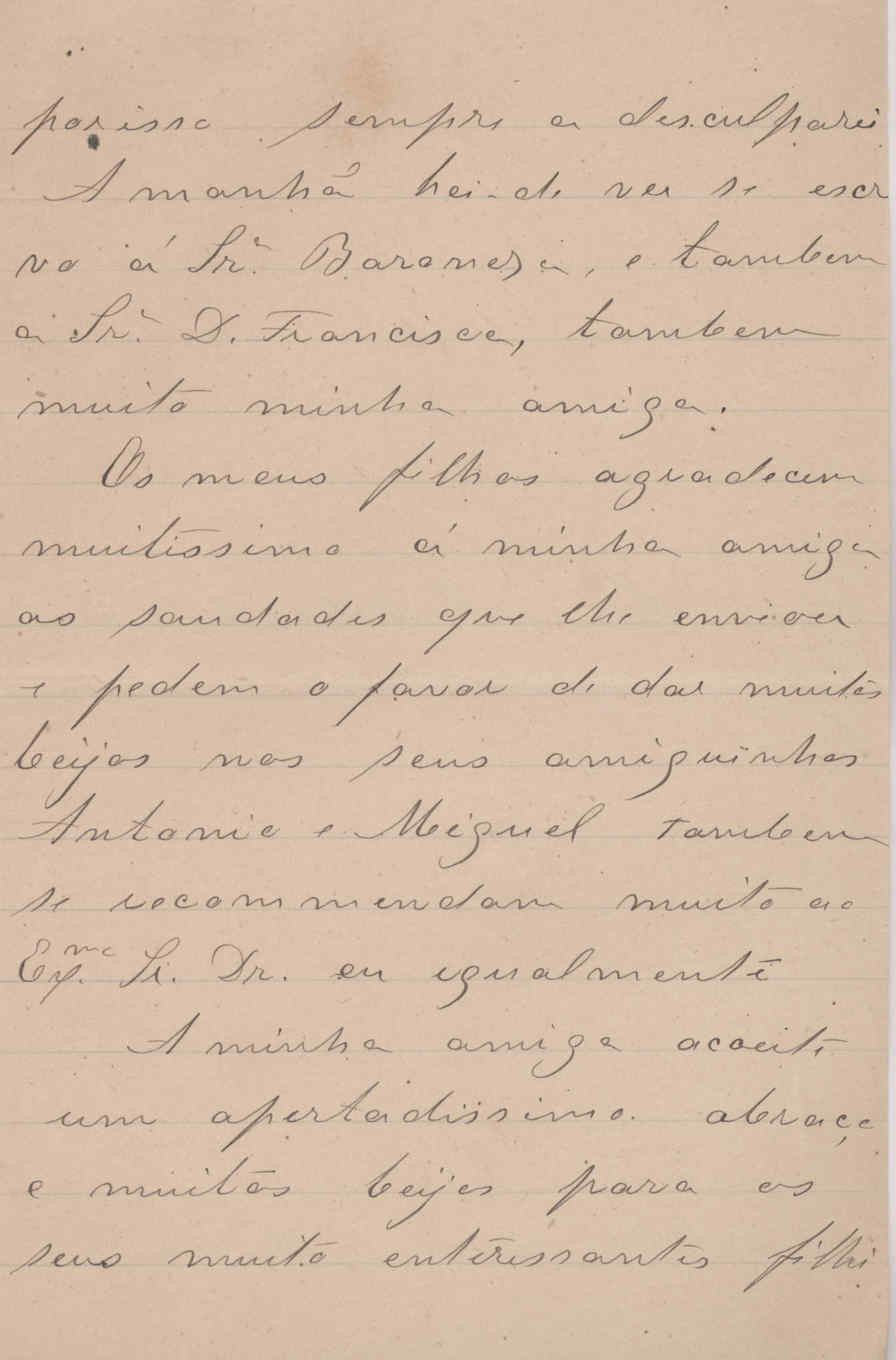 por isso sempre a desculparei
Amanhã hei-de ver se escr
vo á Srª. Baroneza, e tambem
a Srª. D. Francisca, tambem
muito minha amiga.
Os meus filhos agradecem
muitissimo á minha amiga
as saudades que lhe enviou
e pedem o favor de dar muitos
beijos nos seus amiguinhos
Antonio e Miguel tambem
se recommendam muito ao
Exmo. Sr. Dr. eu igualmente
A minha amiga acceite
um apertadissimo abraço
e muitos beijos para os
seus muito enteressantes filhi